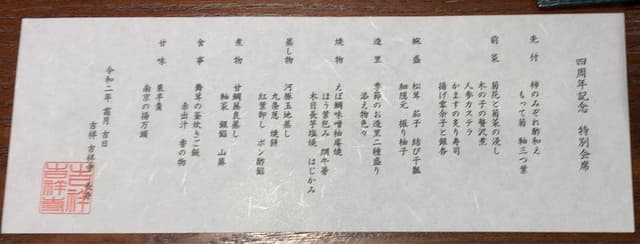 四周年記念 特別会席
先付 柿のみぞれ酢和え
もって菊 軸三つ葉
前菜 菊花と菊菜の浸し
木の子の贅沢煮
人参カステラ
かますの炙り寿司
揚げ零余子と銀杏
椀盛 松茸 茄子 結び干瓢
細隠元 振り柚子
造里 季節のお造里二種盛り
添え物色々
焼物 えぼ鯛味噌柚庵焼
ほう葉包み 胡牛蒡
木目長芋塩焼 はじかみ
蒸し物 河豚玉地蒸し
九条葱 焼餅
紅葉卸し ポン酢餡
煮物 甘鯛蕪良蒸し
軸菜 銀餡 山葵
食事 舞茸の釜炊きご飯
赤出汁 香の物
甘味 栗羊羹
南京の揚万頭
令和二年 霜月 吉日
吉祥 吉祥寺